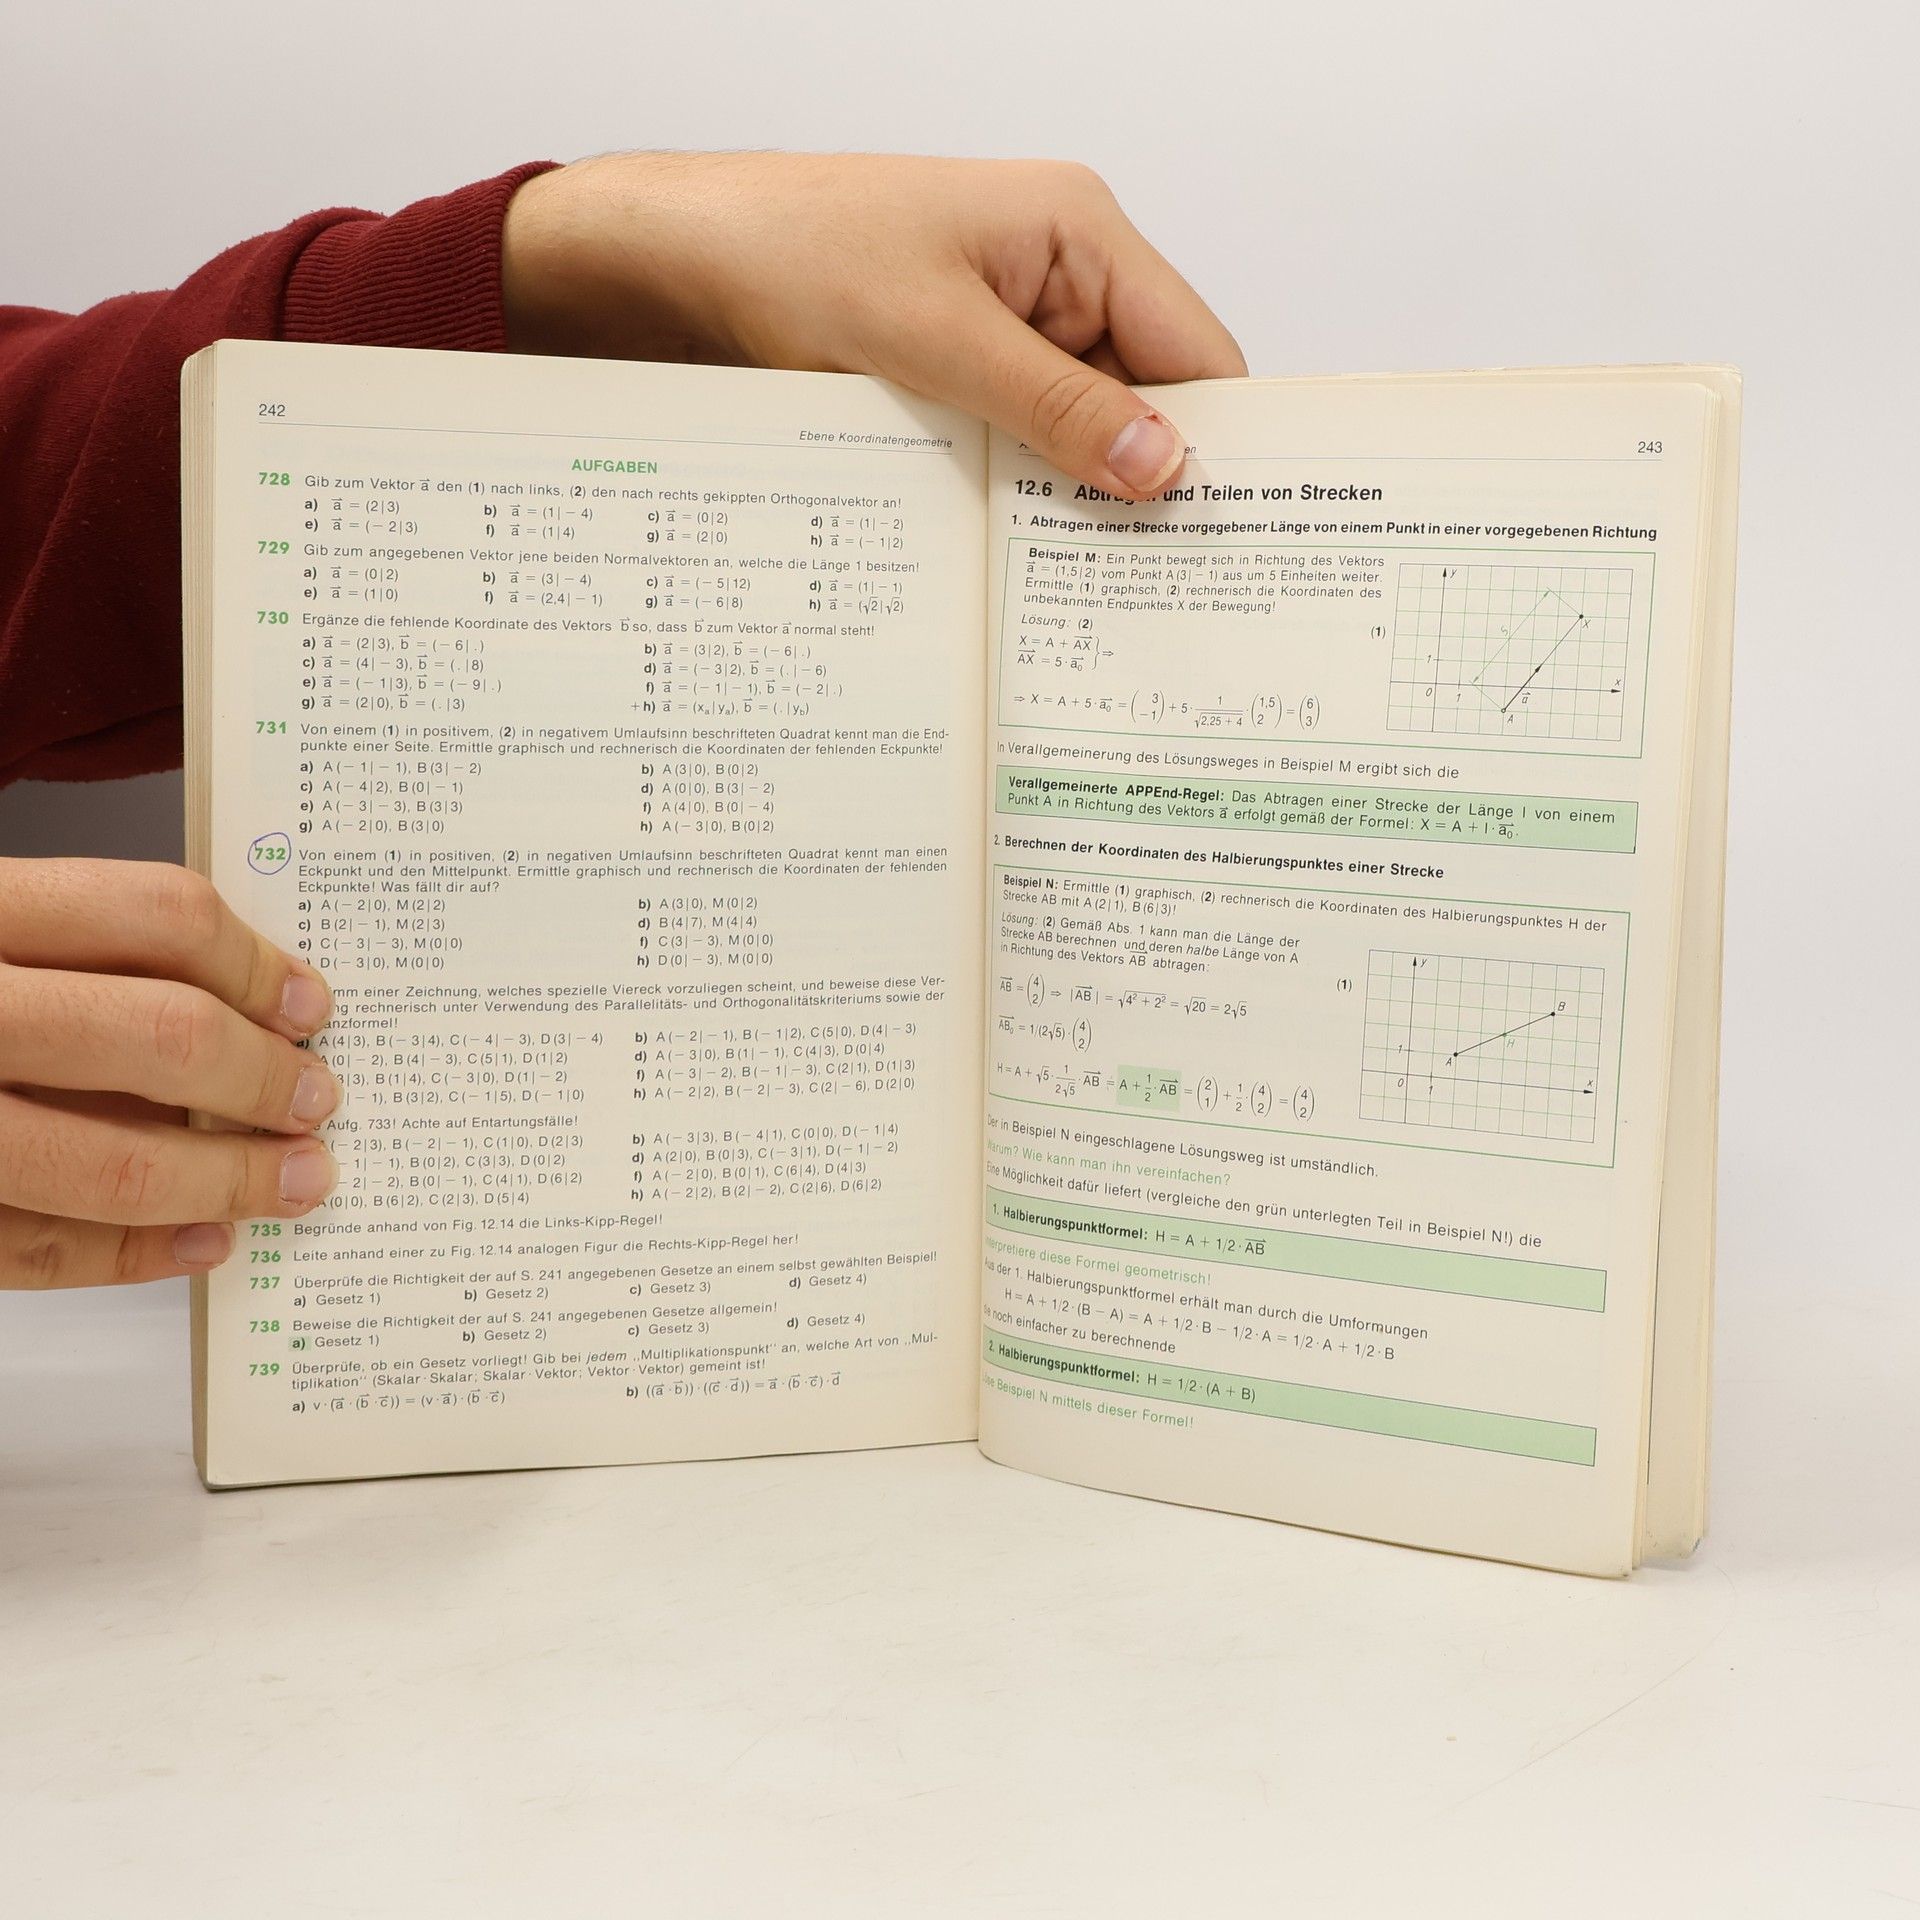 242
Ebene Koordinatengeometrie
AUFGABEN
728 Gib zum Vektor a⃗ den (1) nach links, (2) den nach rechts gekippten Orthogonalvektor an!
a) a⃗ = (2|3) b) a⃗ = (1| − 4) c) a⃗ = (0|2) d) a⃗ = (1| − 2)
e) a⃗ = (− 2|3) f) a⃗ = (1|4) g) a⃗ = (2|0) h) a⃗ = (− 1|2)
729 Gib zum angegebenen Vektor jene beiden Normalvektoren an, welche die Länge 1 besitzen!
a) a⃗ = (0|2) b) a⃗ = (3| − 4) c) a⃗ = (− 5|12) d) a⃗ = (1| − 1)
e) a⃗ = (1|0) f) a⃗ = (2,4| − 1) g) a⃗ = (− 6|8) h) a⃗ = (√2|√2)
730 Ergänze die fehlende Koordinate des Vektors b⃗ so, dass b⃗ zum Vektor a⃗ normal steht!
a) a⃗ = (2|3), b⃗ = (− 6| .) b) a⃗ = (3|2), b⃗ = (− 6| .)
c) a⃗ = (4| − 3), b⃗ = (. |8) d) a⃗ = (− 3|2), b⃗ = (. | − 6)
e) a⃗ = (− 1|3), b⃗ = (− 9| .) f) a⃗ = (− 1| − 1), b⃗ = (− 2| .)
g) a⃗ = (2|0), b⃗ = (. |3) +h) a⃗ = (xₐ|yₐ), b⃗ = (. |y_b)
731 Von einem (1) in positivem, (2) in negativem Umlaufsinn beschrifteten Quadrat kennt man die End-
punkte einer Seite. Ermittle graphisch und rechnerisch die Koordinaten der fehlenden Eckpunkte!
a) A(− 1| − 1), B(3| − 2) b) A(3|0), B(0|2)
c) A(− 4|2), B(0| − 1) d) A(0|0), B(3| − 2)
e) A(− 3| − 3), B(3|3) f) A(4|0), B(0| − 4)
g) A(− 2|0), B(3|0) h) A(− 3|0), B(0|2)
732 Von einem (1) in positiven, (2) in negativen Umlaufsinn beschrifteten Quadrat kennt man einen
Eckpunkt und den Mittelpunkt. Ermittle graphisch und rechnerisch die Koordinaten der fehlenden
Eckpunkte! Was fällt dir auf?
a) A(− 2|0), M(2|2) b) A(3|0), M(0|2)
c) B(2| − 1), M(2|3) d) B(4|7), M(4|4)
e) C(− 3| − 3), M(0|0) f) C(3| − 3), M(0|0)
) D(− 3|0), M(0|0) h) D(0| − 3), M(0|0)
mm einer Zeichnung, welches spezielle Viereck vorzuliegen scheint, und beweise diese Ver-
ng rechnerisch unter Verwendung des Parallelitäts- und Orthogonalitätskriteriums sowie der
anzformel!
a) A(4|3), B(− 3|4), C(− 4| − 3), D(3| − 4) b) A(− 2| − 1), B(− 1|2), C(5|0), D(4| − 3)
A(0| − 2), B(4| − 3), C(5|1), D(1|2) d) A(− 3|0), B(1| − 1), C(4|3), D(0|4)
3|3), B(1|4), C(− 3|0), D(1| − 2) f) A(− 3| − 2), B(− 1| − 3), C(2|1), D(1|3)
| − 1), B(3|2), C(− 1|5), D(− 1|0) h) A(− 2|2), B(− 2| − 3), C(2| − 6), D(2|0)
Aufg. 733! Achte auf Entartungsfälle!
(− 2|3), B(− 2| − 1), C(1|0), D(2|3) b) A(− 3|3), B(− 4|1), C(0|0), D(− 1|4)
− 1| − 1), B(0|2), C(3|3), D(0|2) d) A(2|0), B(0|3), C(− 3|1), D(− 1| − 2)
− 2| − 2), B(0| − 1), C(4|1), D(6|2) f) A(− 2|0), B(0|1), C(6|4), D(4|3)
A(0|0), B(6|2), C(2|3), D(5|4) h) A(− 2|2), B(2| − 2), C(2|6), D(6|2)
735 Begründe anhand von Fig. 12.14 die Links-Kipp-Regel!
736 Leite anhand einer zu Fig. 12.14 analogen Figur die Rechts-Kipp-Regel her!
737 Überprüfe die Richtigkeit der auf S. 241 angegebenen Gesetze an einem selbst gewählten Beispiel!
a) Gesetz 1) b) Gesetz 2) c) Gesetz 3) d) Gesetz 4)
738 Beweise die Richtigkeit der auf S. 241 angegebenen Gesetze allgemein!
a) Gesetz 1) b) Gesetz 2) c) Gesetz 3) d) Gesetz 4)
739 Überprüfe, ob ein Gesetz vorliegt! Gib bei jedem „Multiplikationspunkt“ an, welche Art von „Mul-
tiplikation“ (Skalar · Skalar; Skalar · Vektor; Vektor · Vektor) gemeint ist!
a) v · (a⃗ · (b⃗ · c⃗)) = (v · a⃗) · (b⃗ · c⃗) b) ((a⃗ · b⃗)) · ((c⃗ · d⃗)) = a⃗ · (b⃗ · c⃗) · d⃗
A en
243
12.6 Abtragen und Teilen von Strecken
1. Abtragen einer Strecke vorgegebener Länge von einem Punkt in einer vorgegebenen Richtung
Beispiel M: Ein Punkt bewegt sich in Richtung des Vektors
a⃗ = (1,5|2) vom Punkt A(3| − 1) aus um 5 Einheiten weiter.
Ermittle (1) graphisch, (2) rechnerisch die Koordinaten des
unbekannten Endpunktes X der Bewegung!
Lösung: (2)
(1)
X = A + AX⃗
AX⃗ = 5 · a₀⃗ } ⇒
⇒ X = A + 5 · a₀⃗ = (3 −1) + 5 · 1/√(2,25 + 4) · (1,5 2) = (6 3)
y
X
5
1
x
0 1
a⃗
A
In Verallgemeinerung des Lösungsweges in Beispiel M ergibt sich die
Verallgemeinerte APPEnd-Regel: Das Abtragen einer Strecke der Länge l von einem
Punkt A in Richtung des Vektors a⃗ erfolgt gemäß der Formel: X = A + l · a₀⃗.
2. Berechnen der Koordinaten des Halbierungspunktes einer Strecke
Beispiel N: Ermittle (1) graphisch, (2) rechnerisch die Koordinaten des Halbierungspunktes H der
Strecke AB mit A(2|1), B(6|3)!
Lösung: (2) Gemäß Abs. 1 kann man die Länge der
Strecke AB berechnen und deren halbe Länge von A
in Richtung des Vektors AB⃗ abtragen:
(1)
AB⃗ = (4 2) ⇒ |AB⃗| = √(4² + 2²) = √20 = 2√5
AB₀⃗ = 1/(2√5) · (4 2)
H = A + √5 · 1/(2√5) · AB⃗ = A + 1/2 · AB⃗ = (2 1) + 1/2 · (4 2) = (4 2)
y
B
H
1
A
x
0 1
Der in Beispiel N eingeschlagene Lösungsweg ist umständlich.
Warum? Wie kann man ihn vereinfachen?
Eine Möglichkeit dafür liefert (vergleiche den grün unterlegten Teil in Beispiel N!) die
1. Halbierungspunktformel: H = A + 1/2 · AB⃗
Interpretiere diese Formel geometrisch!
Aus der 1. Halbierungspunktformel erhält man durch die Umformungen
H = A + 1/2 · (B − A) = A + 1/2 · B − 1/2 · A = 1/2 · A + 1/2 · B
die noch einfacher zu berechnende
2. Halbierungspunktformel: H = 1/2 · (A + B)
Löse Beispiel N mittels dieser Formel!